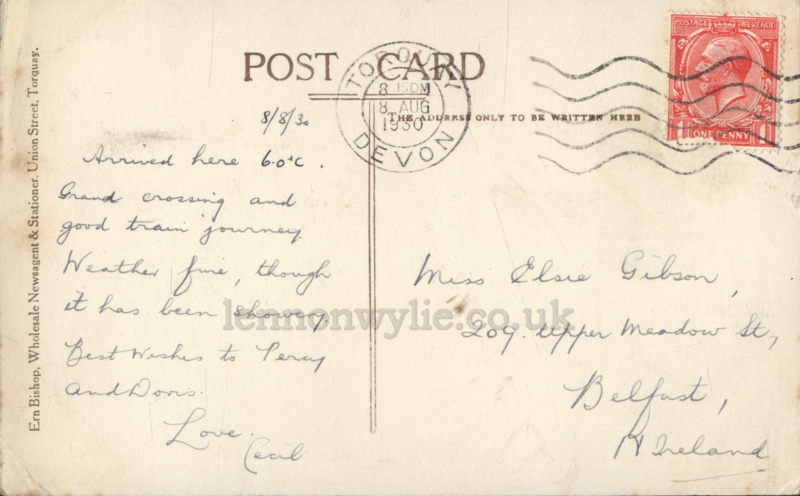 POST CARD
TORQUAY
8 15PM
8 AUG
1930
DEVON
POSTAGE REVENUE
ONE PENNY
THE ADDRESS ONLY TO BE WRITTEN HERE
Ern Bishop, Wholesale Newsagent & Stationer, Union Street, Torquay.
8/8/30
Arrived here 6.0'c.
Grand crossing and
good train journey
Weather fine, though
it has been showery
Best Wishes to Percy
and Doris.
Love.
Cecil
Miss Elsie Gibson,
209. Upper Meadow St,
Belfast,
N Ireland
lennonwylie.co.uk